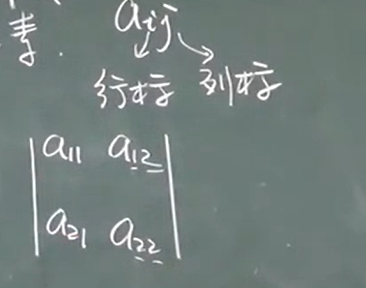 素. aij
行标 列标
a11 a12
a21 a22